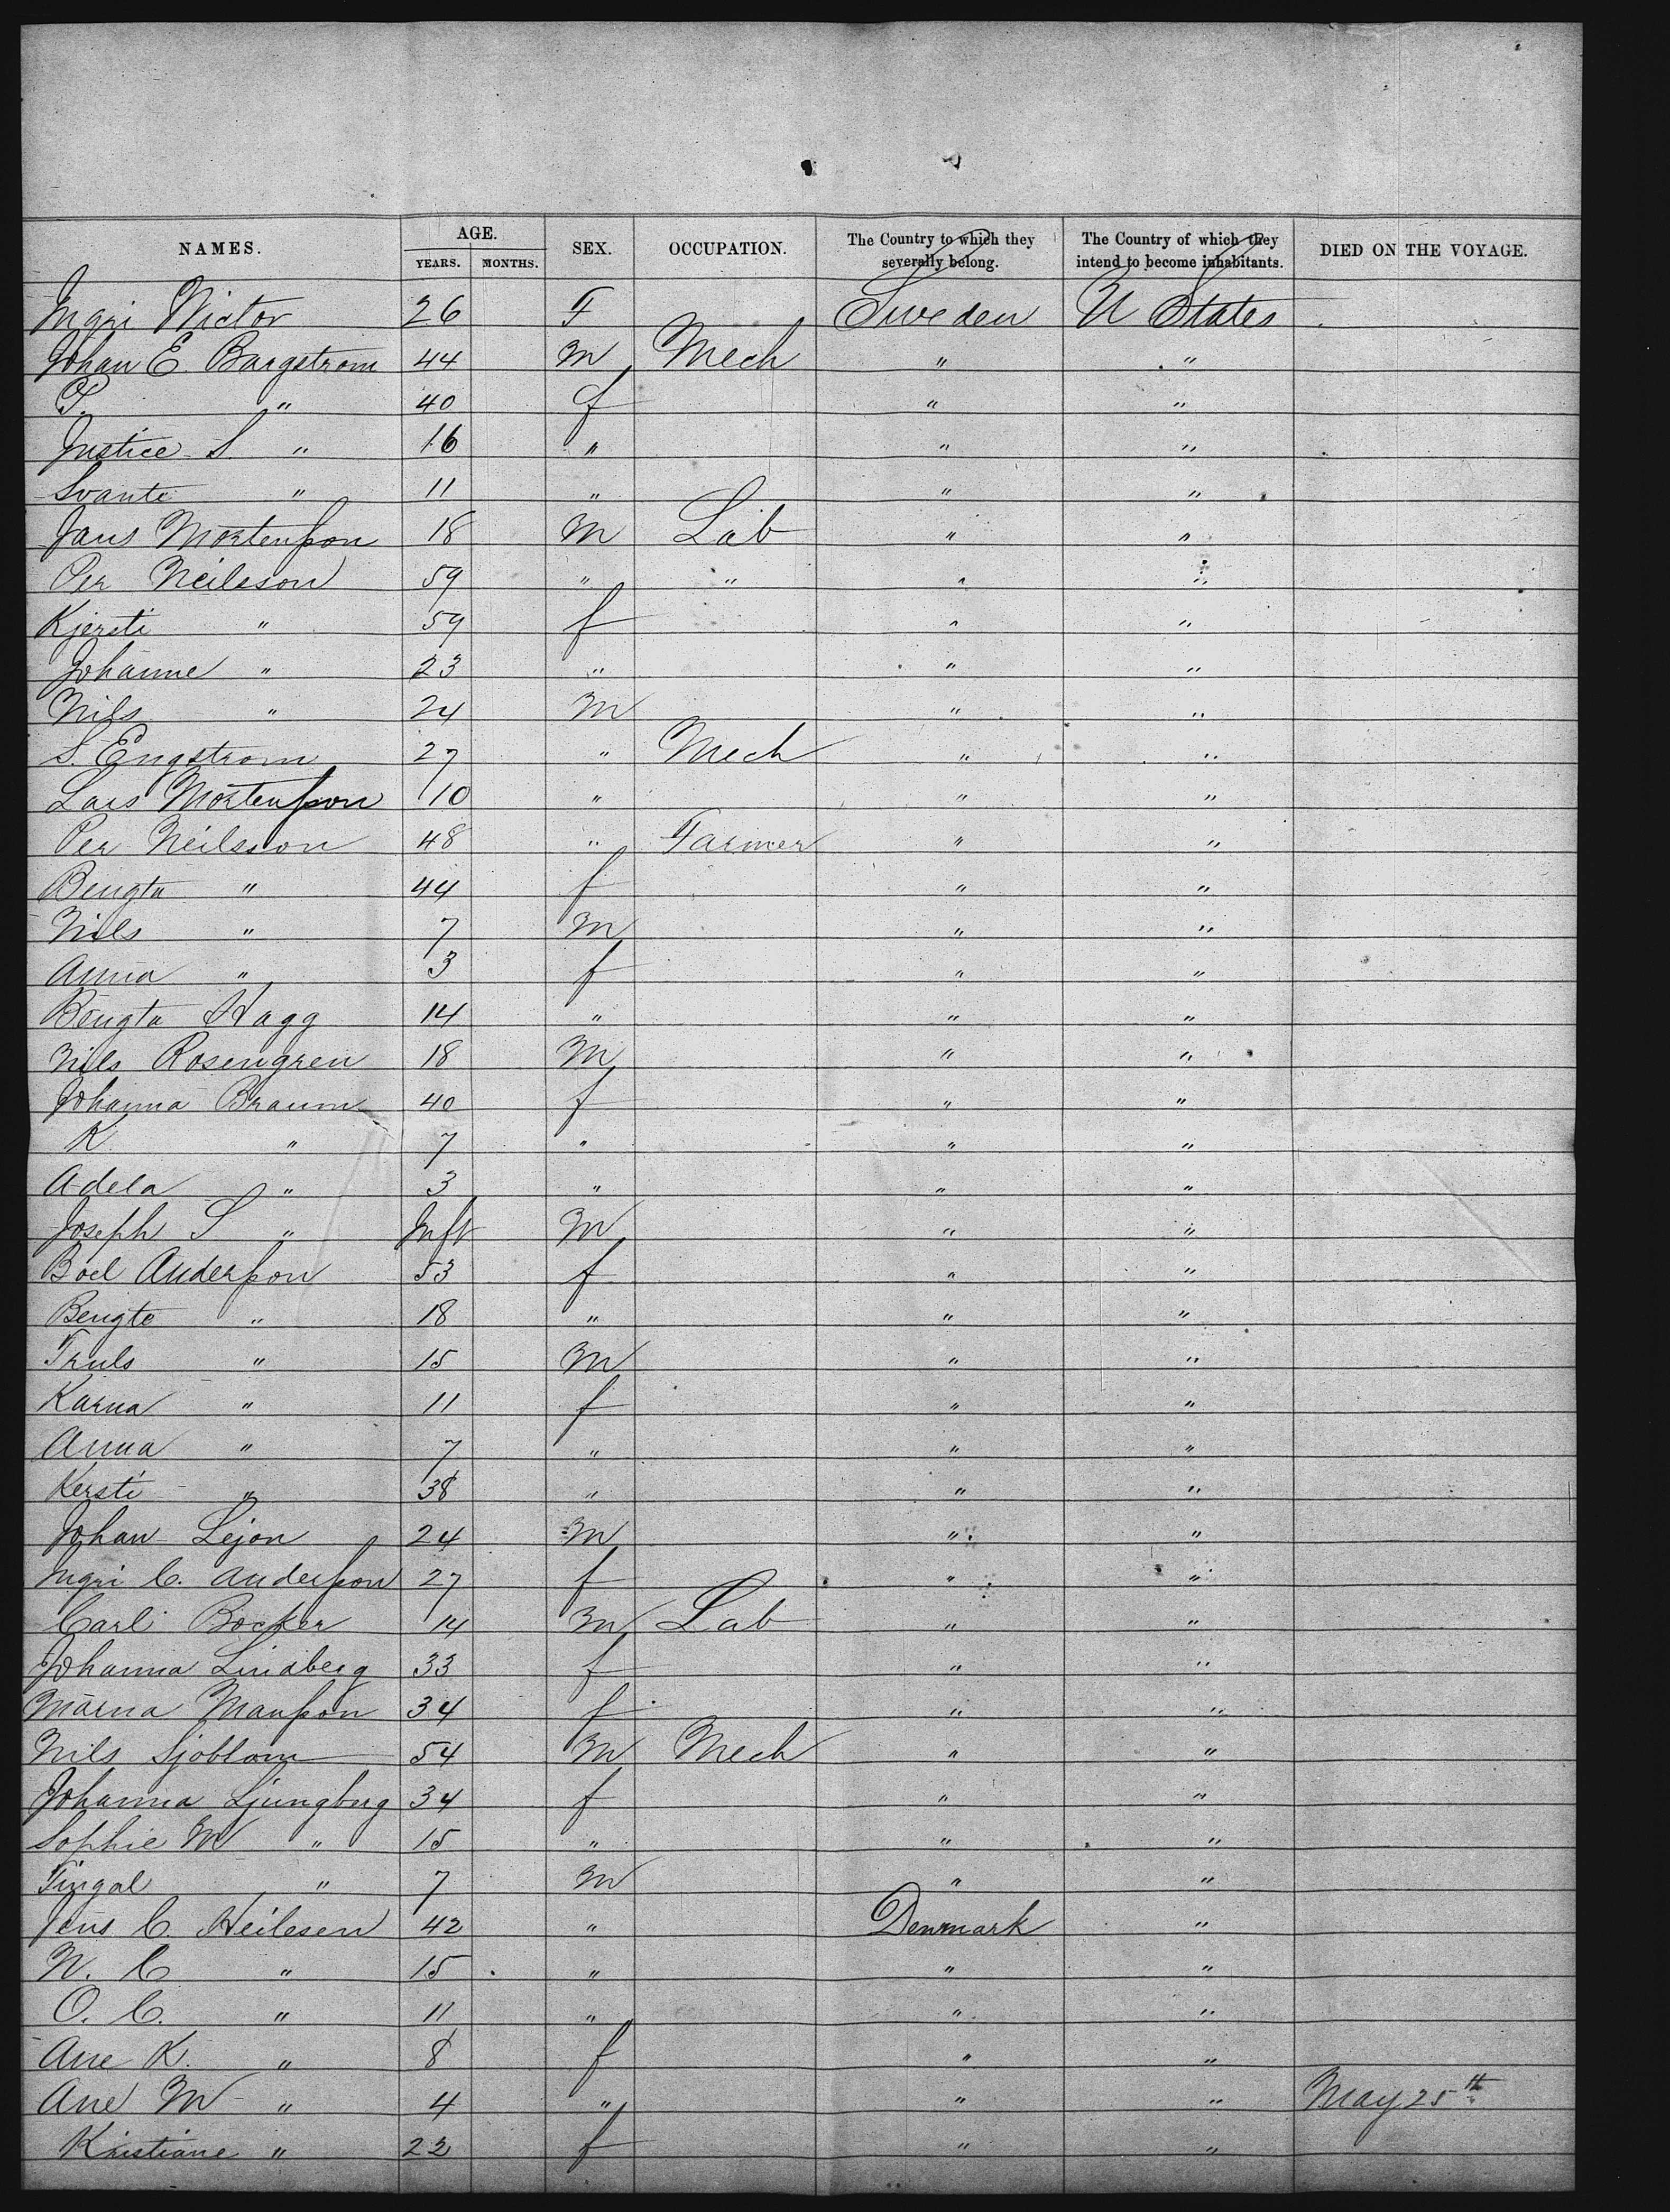 NAMES. AGE. SEX. OCCUPATION. The Country to which they severally belong. The Country of which they intend to become inhabitants. DIED ON THE VOYAGE.
YEARS. MONTHS.
Ingri Victor 26 F Sweden U States
Johan E. Bargstrom 44 M Mech " "
P. " 40 f " "
Justice S. " 16 " " "
Svante " 11 " " "
Jans Mortensson 18 M Lab " "
Per Neilsson 59 " " " "
Kjersti " 59 f " "
Johanne " 23 " " "
Nils " 24 M " "
S. Engstrom 27 " Mech " "
Lars Mortensson 10 " " "
Per Neilsson 48 " Farmer " "
Bengta " 44 f " "
Nils " 7 M " "
Anna " 3 f " "
Bengta Hagg 14 " " "
Nils Rosengren 18 M " "
Johanna Braum 40 f " "
K " 7 " " "
Adela " 3 " " "
Joseph S " Inft M " "
Boel Andersson 53 f " "
Bengte " 18 " " "
Truls " 15 M " "
Karna " 11 f " "
Anna " 7 " " "
Kersti " 38 " " "
Johan Lejon 24 M " "
Ingri C. Andersson 27 f " "
Carl Bocker 14 M Lab " "
Johanna Lindberg 33 f " "
Marna Mansson 34 f " "
Nils Sjoblom 54 M Mech " "
Johanna Ljungberg 34 f " "
Sophie M " 15 " " "
Fingal " 7 M " "
Jens C. Heilesen 42 " Denmark "
N. C " 15 " " "
O. C. " 11 " " "
Ane K. " 8 f " "
Ane M " 4 " " " May 25th
Kristiane " 22 f " "